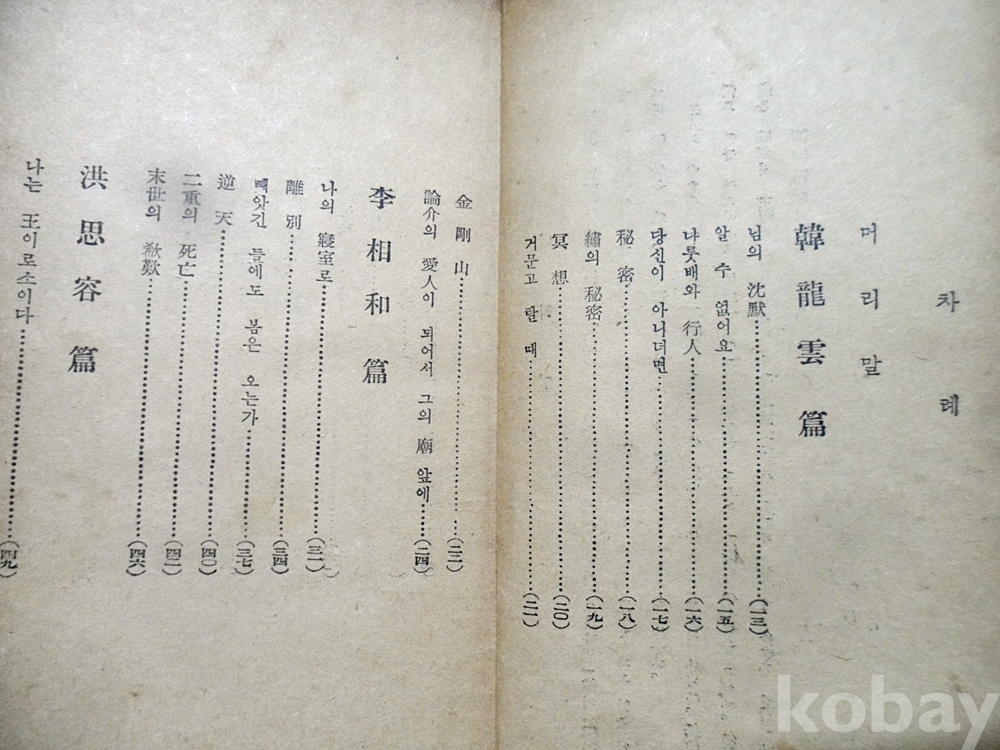 차례
머리말
韓龍雲篇
님의 沈默 (一三)
알 수 없어요 (一五)
나룻배와 行人 (一六)
당신이 아니더면 (一七)
秘密 (一八)
繡의 秘密 (一九)
冥想 (二〇)
거문고 탈 때 (二一)
金剛山 (二二)
論介의 愛人이 되어서 그의 廟 앞에 (二四)
李相和篇
나의 寢室로 (三一)
離別 (三四)
빼앗긴 들에도 봄은 오는가 (三七)
逆天 (四〇)
二重의 死亡 (四二)
末世의 欷歎 (四六)
洪思容篇
나는 王이로소이다 (四九)
kobay